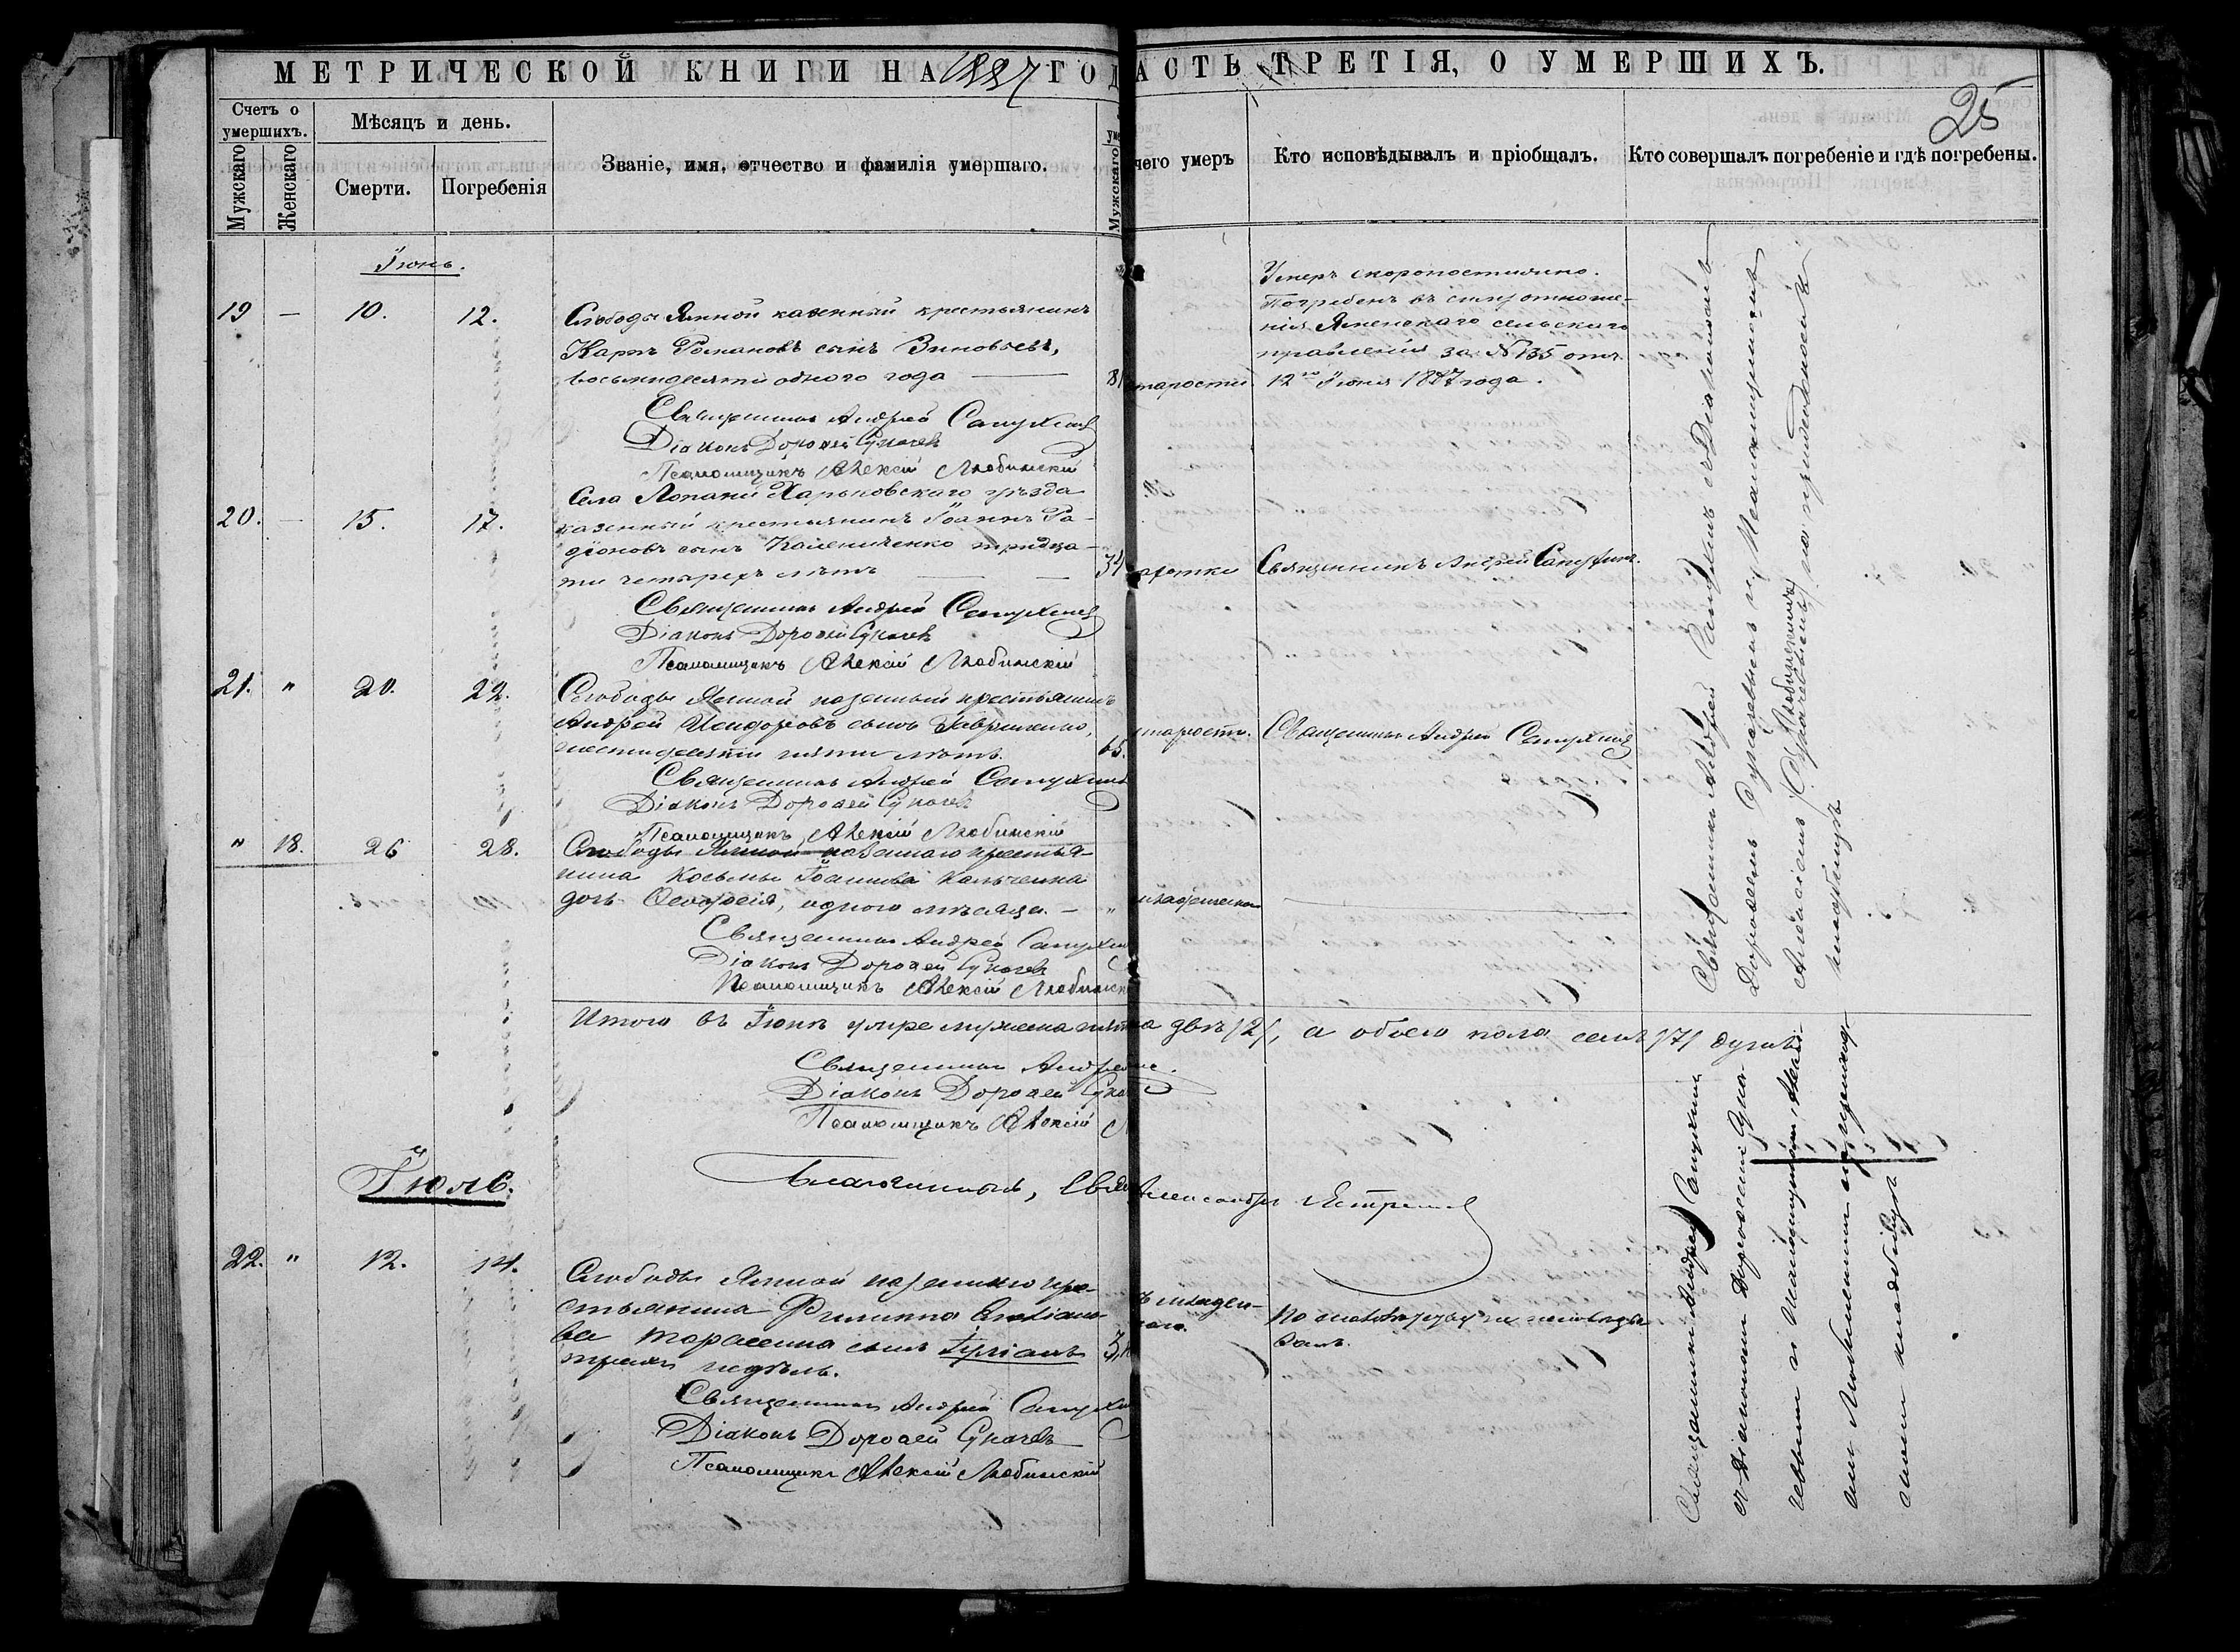 МЕТРИЧЕСКОЙ КНИГИ НА 1887 ГОД
АСТЬ ТРЕТІЯ, О УМЕРШИХЪ.
25
Счетъ о умершихъ.
Мужскаго
Женскаго
Мѣсяцъ и день.
Смерти.
Погребенія
Званіе, имя, отчество и фамилія умершаго.
Мужскаго
чего умеръ
Кто исповѣдывалъ и пріобщалъ.
Кто совершалъ погребеніе и гдѣ погребены.
Іюнь.
19 — 10. 12.
Слободы Ямной казенный крестьянинъ
Карпъ Романовъ сынъ Зиновьевъ,
восьмидесяти одного года
81
старости
Умеръ скоропостижно.
Погребенъ въ силу отноше-
нія Яменскаго сельскаго
правленія за № 135 отъ
12го Іюня 1887 года.
Священникъ Андрей Сапухинъ
Діаконъ Дороѳей Сукачевъ
Псаломщикъ Алексій Любинскій
20. — 15. 17.
Села Лопани Харьковскаго уѣзда
казенный крестьянинъ Іоаннъ Ра-
діоновъ сынъ тридца-
ти четырехъ лѣтъ
34
Священникъ Андрей Сапухинъ.
Священникъ Андрей Сапухинъ
Діаконъ Дороѳей Сукачевъ
Псаломщикъ Алексій Любинскій
21. " 20. 22.
Слободы Ямной казенный крестьянинъ
Андрей Исидоровъ сынъ Гавриленко,
шестидесяти пяти лѣтъ.
65.
старости.
Священникъ Андрей Сапухинъ
Священникъ Андрей Сапухинъ
Діаконъ Дороѳей Сукачевъ
Псаломщикъ Алексій Любинскій
" 18. 26 28.
Слободы Ямной казеннаго крестья-
нина Косьмы Іоаннова Кальченка
дочь Ѳеодосія, одного мѣсяца. — "
младенческой
Священникъ Андрей Сапухин
Діаконъ Дороѳей Сукачевъ
Псаломщикъ Алексій Любинск
Итого въ Іюнѣ умре мужеска пят
а двѣ /2/, а обоего пола семь /7/ душъ
Священникъ Андрей
Діаконъ Дороѳей Сука
Псаломщикъ Алексій
Благочинный, Свящ
Александръ
Іюль.
22. " 12. 14.
Слободы Ямной казеннаго кре-
стьянина Филиппа
ва сынъ
трехъ недѣль.
3
младен-
По малолѣтству не исповѣды
ванъ.
Священникъ Андрей Сапухи
Діаконъ Дороѳей Сукачевъ
Псаломщикъ Алексій Любинскій
Священникъ Андрей Сапухинъ съ Діакономъ
Дороѳеемъ Сукачевымъ и Псаломщикомъ
Алексіемъ Любинскимъ на приходскомъ
кладбищѣ
Священникъ Андрей Сапухинъ
съ Діакономъ Дороѳеемъ Сука-
чевымъ и Псаломщикомъ Алексі-
емъ Любинскимъ на приход-
скомъ кладбищѣ